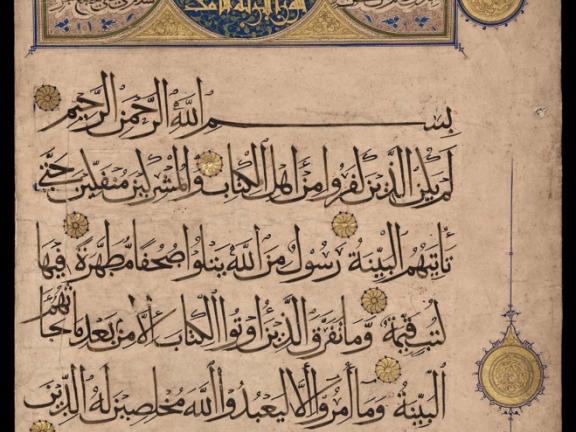 بسم الله الرحمن الرحيم
لم يكن الذين كفروا من اهل الكتاب والمشركين منفكين حتى
تأتيهم البينة رسول من الله يتلوا صحفا مطهرة فيها
كتب قيمة وما تفرق الذين اوتوا الكتاب الا من بعد ما جاءتهم
البينة وما امروا الا ليعبدوا الله مخلصين له الدين